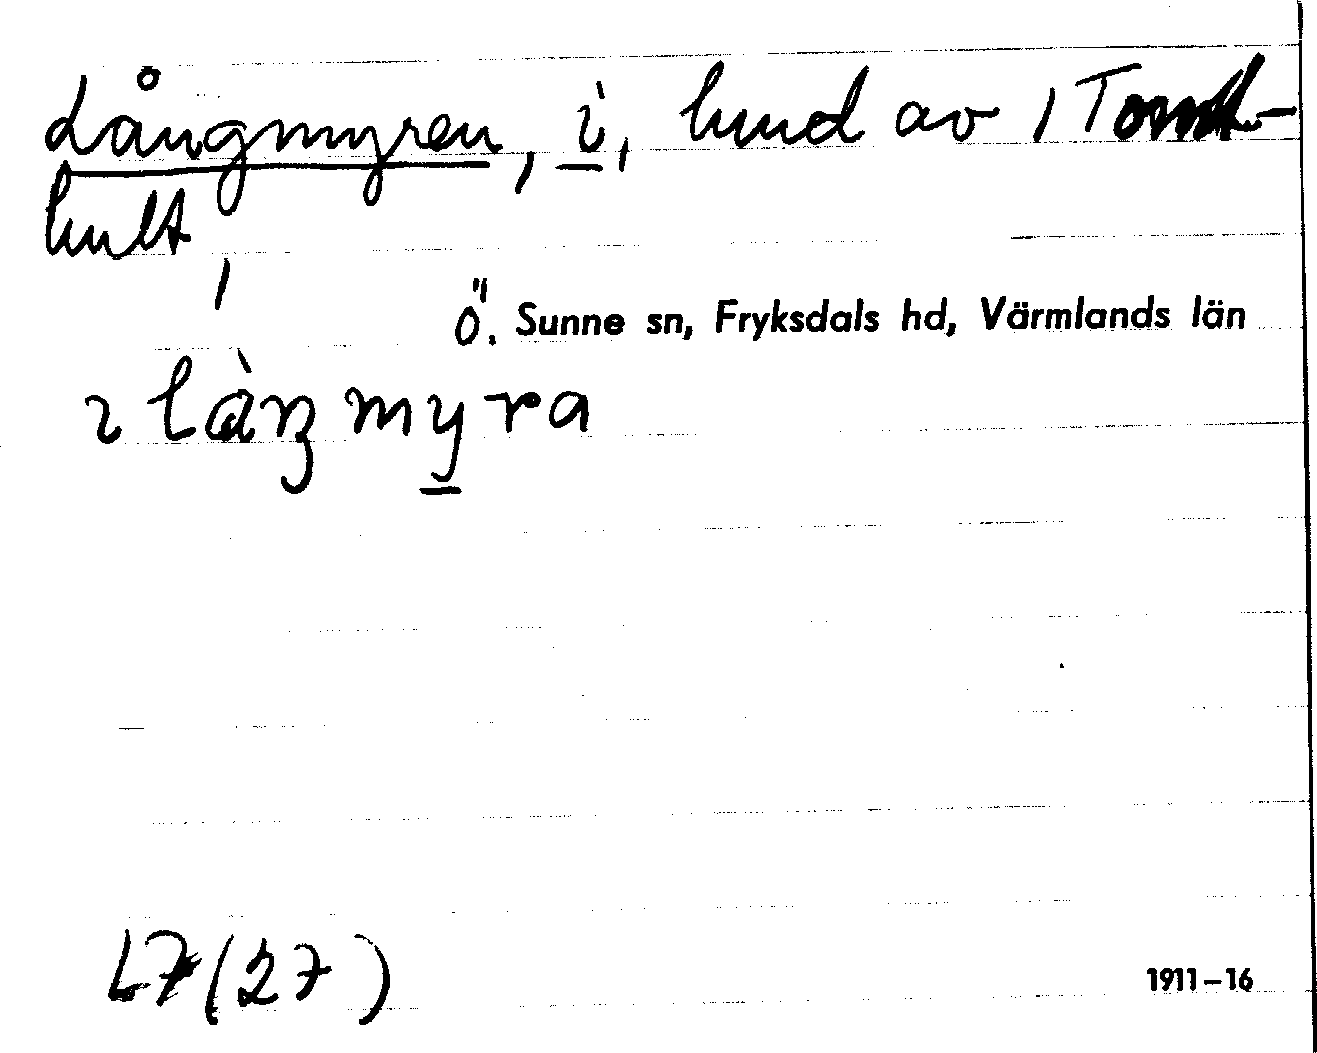 Långmyren, i, lund av 1 Tomt-
hult,
Ö. Sunne sn, Fryksdals hd, Värmlands län
2 làŋmyra
L7 (27)
1911-16